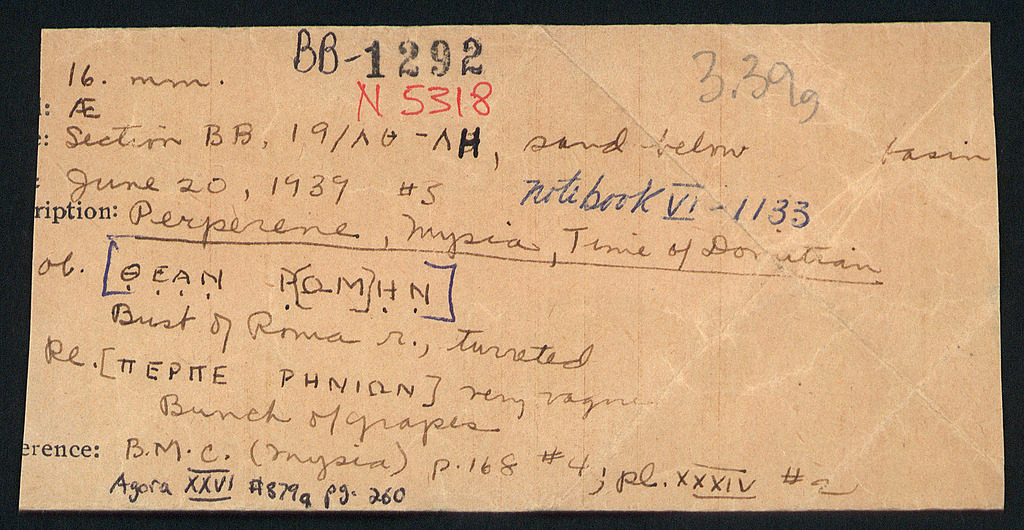 BB-1292
16. mm. 3.39g
N 5318
: Æ
: Section BB, 19/ΛΘ-ΛΗ, sand below basin
: June 20, 1939 #5 notebook VI-1133
ription: Perperene, Mysia, Time of Domitian
ob. [ΘΕΑΝ Ρ[ΩΜ]ΗΝ]
Bust of Roma r., turreted
Re. [ΠΕΡΠΕ ΡΗΝΙΩΝ] very vague
Bunch of grapes
erence: B.M.C. (Mysia) p.168 #4; pl. XXXIV #2
Agora XXVI #879a pg. 260